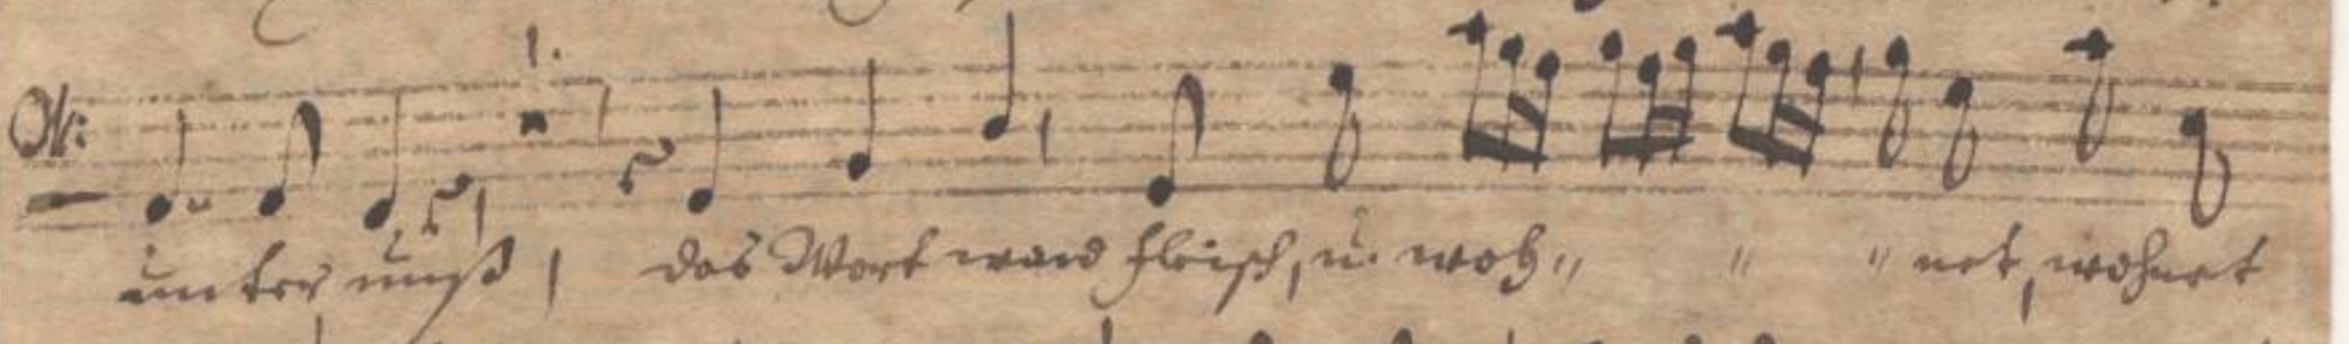 1.
unter unß, das Wort ward fleisch, u. woh,, ,, ,, net, wohnet